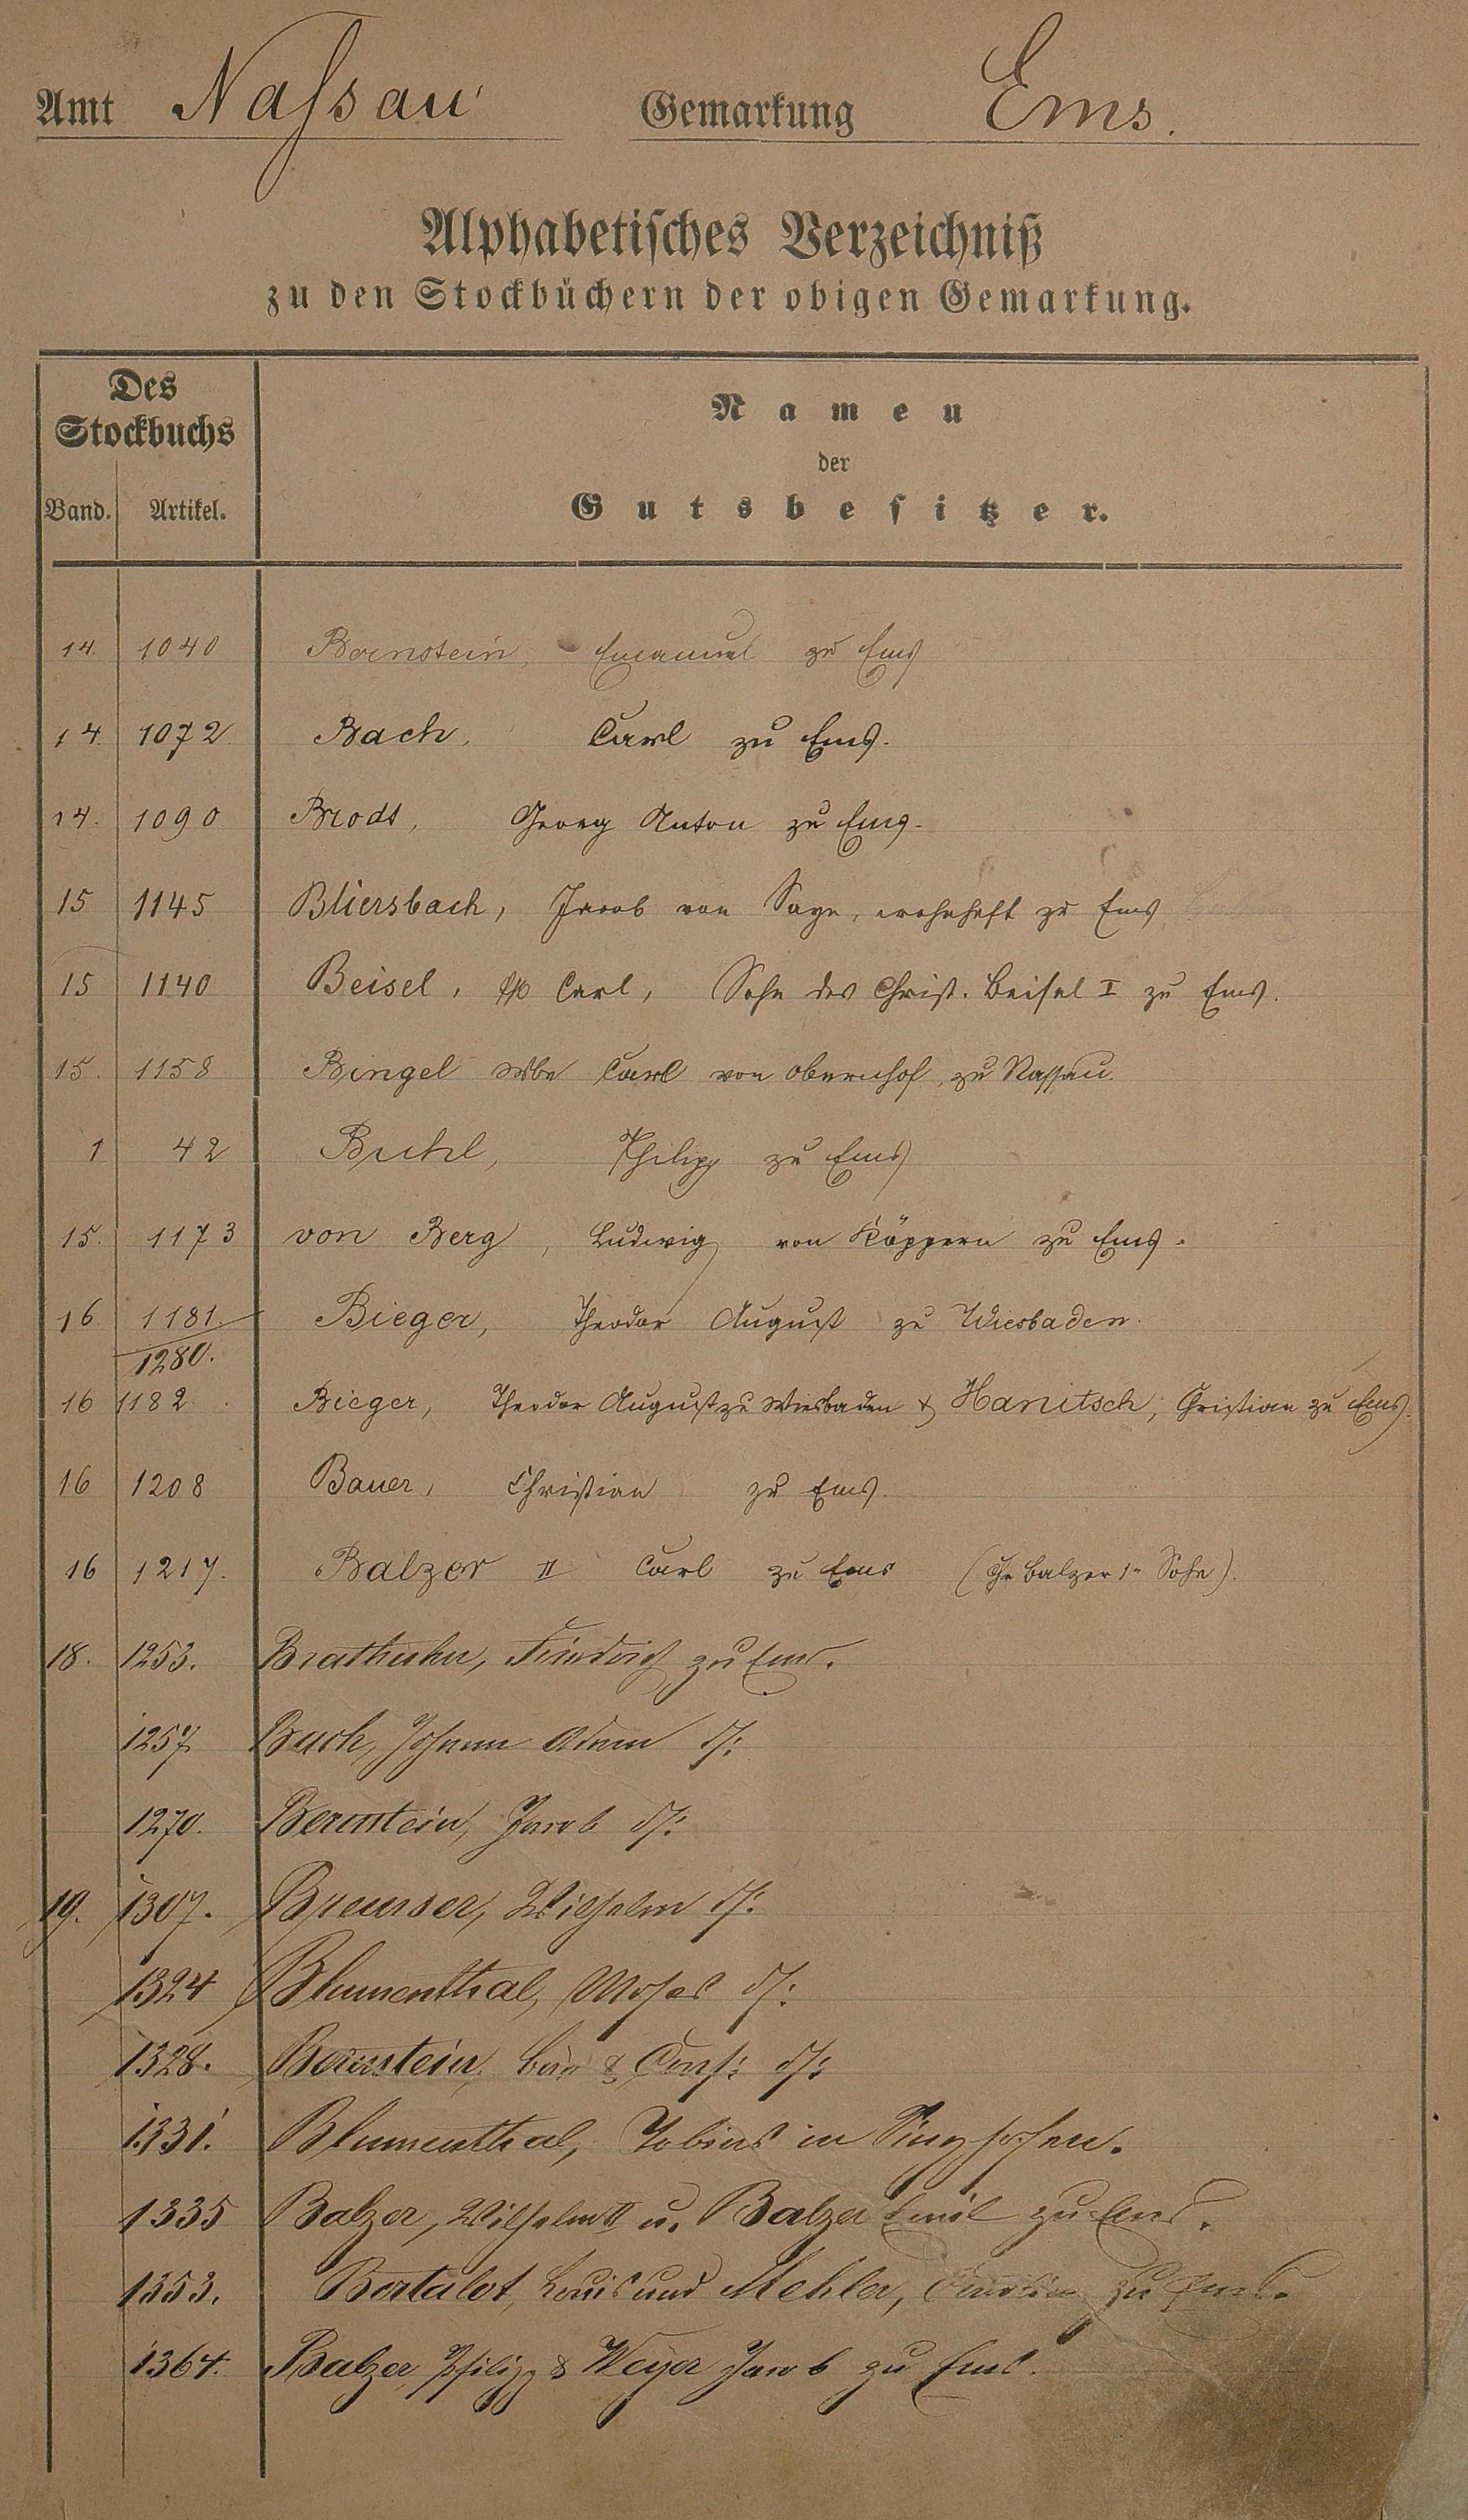 Amt Nassau Gemarkung Ems.
Alphabetisches Verzeichniß
zu den Stockbüchern der obigen Gemarkung.
Des Stockbuchs
Namen
der
Band. Artikel.
Gutsbesitzer.
14. 1040 Bernstein, Emanuel zu Ems
14. 1072. Bach, Carl zu Ems.
14. 1090 Brodt, Georg Anton zu Ems.
15 1145 Bliersbach, Jacob von Sayn, wohnhaft zu Ems
15 1140 Beisel, Carl, Sohn des Christ. Beisel I zu Ems.
15. 1158 Bingel Wbe Carl von Obernhof, zu Nassau.
1 42 Buhl, Philipp zu Ems
15. 1173 von Berg, Ludwig von Köppern zu Ems.
16. 1181. Bieger, Theodor August zu Wiesbaden.
1280.
16 1182. Bieger, Theodor August zu Wiesbaden & Hanitsch, Christian zu Ems.
16 1208 Bauer, Christian zu Ems.
16 1217. Balzer II Carl zu Ems (Chr Balzer 1r Sohn).
18. 1253. Brathuhn, Friedrich zu Ems.
1257 Bach, Johann Adam ds:
1270. Bernstein, Jacob ds:
19. 1307. Breuser, Wilhelm ds:
1324 Blumenthal, Moses ds:
1328. Bernstein, & Cons: ds:
1331. Blumenthal, Tobias in Singhofen.
1335 Balzer, Wilhelm II u. Balzer Emil zu Ems.
1353. Bertalot, Louis und Mehler, zu Ems.
1364. Balzer, Philipp & Weyer Jacob zu Ems.